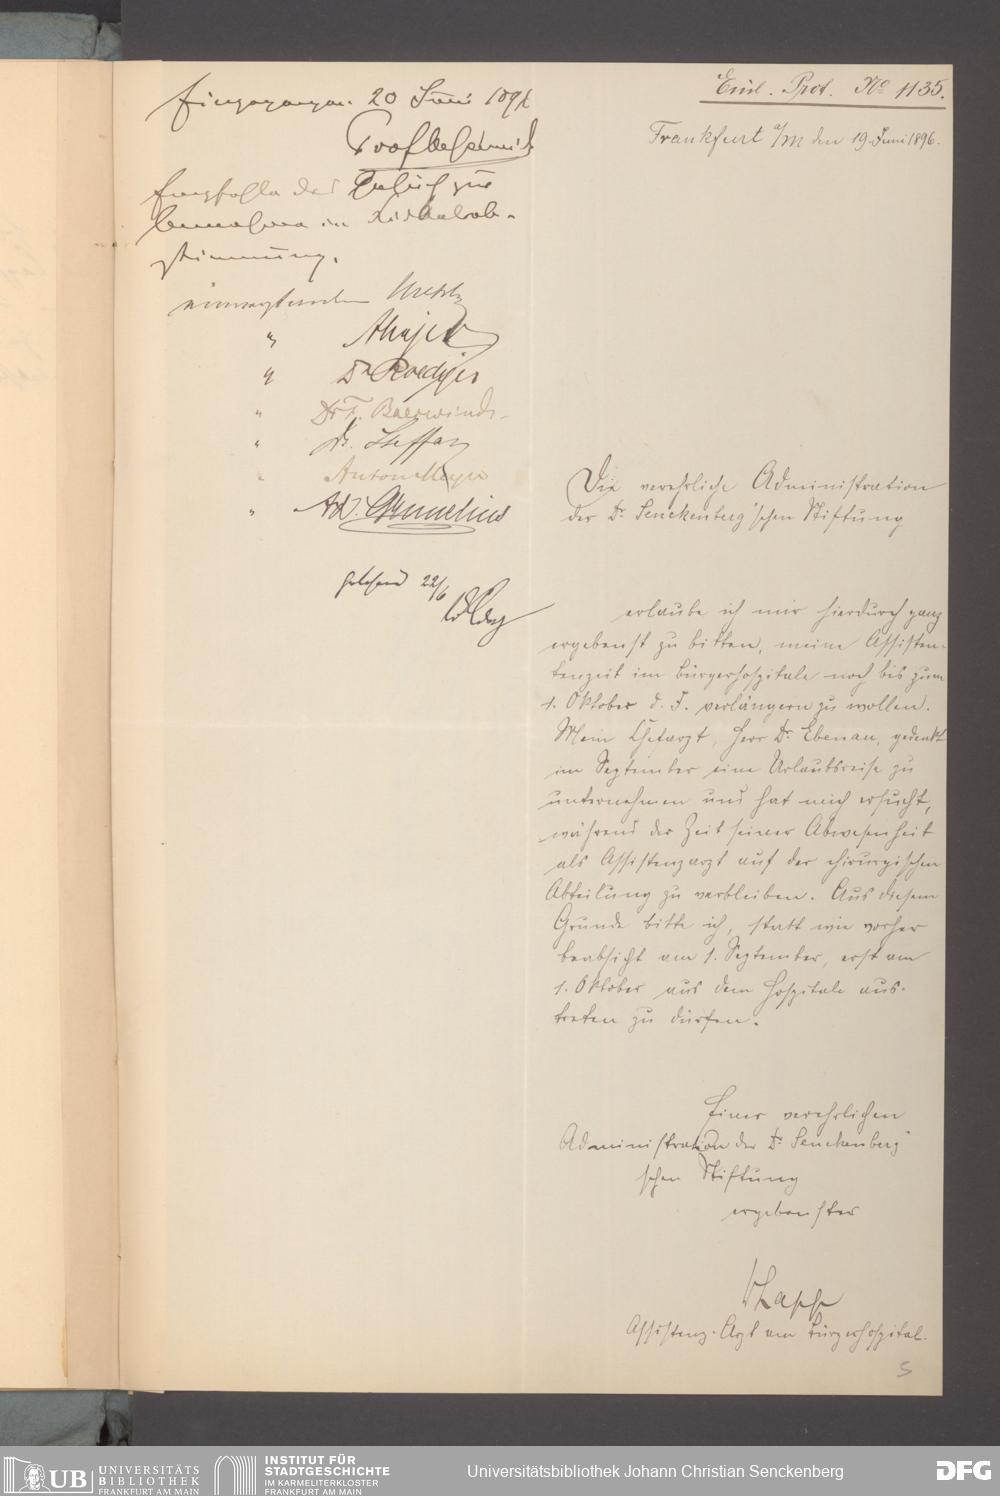 Einl. Prot. No 1135.
Frankfurt a/M den 19. Juni 1896.
Eingegangen. 20 Juni 1896
Empfehle das Gesuch zur
in Zirkularab-
stimmung.
einverstanden
"
" Dr Roediger
" Dr F. Baerwindt
" Dr. Steffan
" Anton Meyer
" Ad. Grunelius
gelesen 22/6
Die verehrliche Administration
der Dr. Senckenberg'schen Stiftung
erlaube ich mir hierdurch ganz
ergebenst zu bitten, meine Assisten-
tenzeit im Bürgerhospitale noch bis zum
1. Oktober d. J. verlängern zu wollen.
Mein Chefarzt, Herr Dr. Ebenau, gedenkt
im September eine Urlaubsreise zu
unternehmen und hat mich ersucht,
während der Zeit seiner Abwesenheit
als Assistenzarzt auf der chirurgischen
Abteilung zu verbleiben. Aus diesem
Grunde bitte ich, statt wie vorher
beabsicht am 1. September, erst am
1. Oktober aus dem Hospitale aus-
treten zu dürfen.
Einer verehrlichen
Administration der Dr. Senckenberg'
schen Stiftung
ergebenster
Assistenz-Arzt am Bürgerhospital.
5
UB UNIVERSITÄTS
BIBLIOTHEK
FRANKFURT AM MAIN
INSTITUT FÜR
STADTGESCHICHTE
IM KARMELITERKLOSTER
FRANKFURT AM MAIN
Universitätsbibliothek Johann Christian Senckenberg
DFG